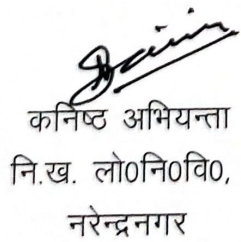 कनिष्ठ अभियन्ता
नि.ख. लो0नि0वि0,
नरेन्द्रनगर